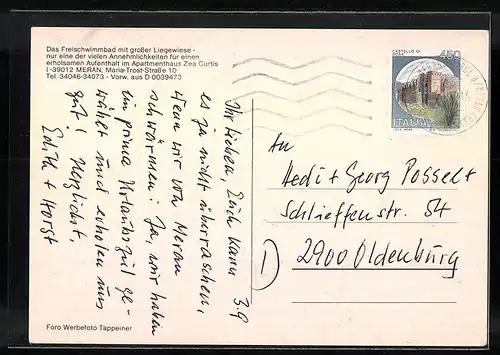 Das Freischwimmbad mit großer Liegewiese -
nur eine der vielen Annehmlichkeiten für einen
erholsamen Aufenthalt im Apartmenthaus Zea Curtis
I-39012 MERAN, Maria-Trost-Straße 10
Tel. 34046-34073 - Vorw. aus D 0039473
CASTELLO DI
450
ITALIA
3.9
Ihr Lieben, Euch kann
es ja nicht überraschen,
wenn wir von Meran
schwärmen! Ja, wir haben
ein prima Urlaubsziel ge-
wählt und erholen uns
gut! Herzlichst
Edith + Horst
An
Hedi + Georg Posselt
Schlieffenstr. 54
2900 Oldenburg
Foro Werbefoto Tappeiner